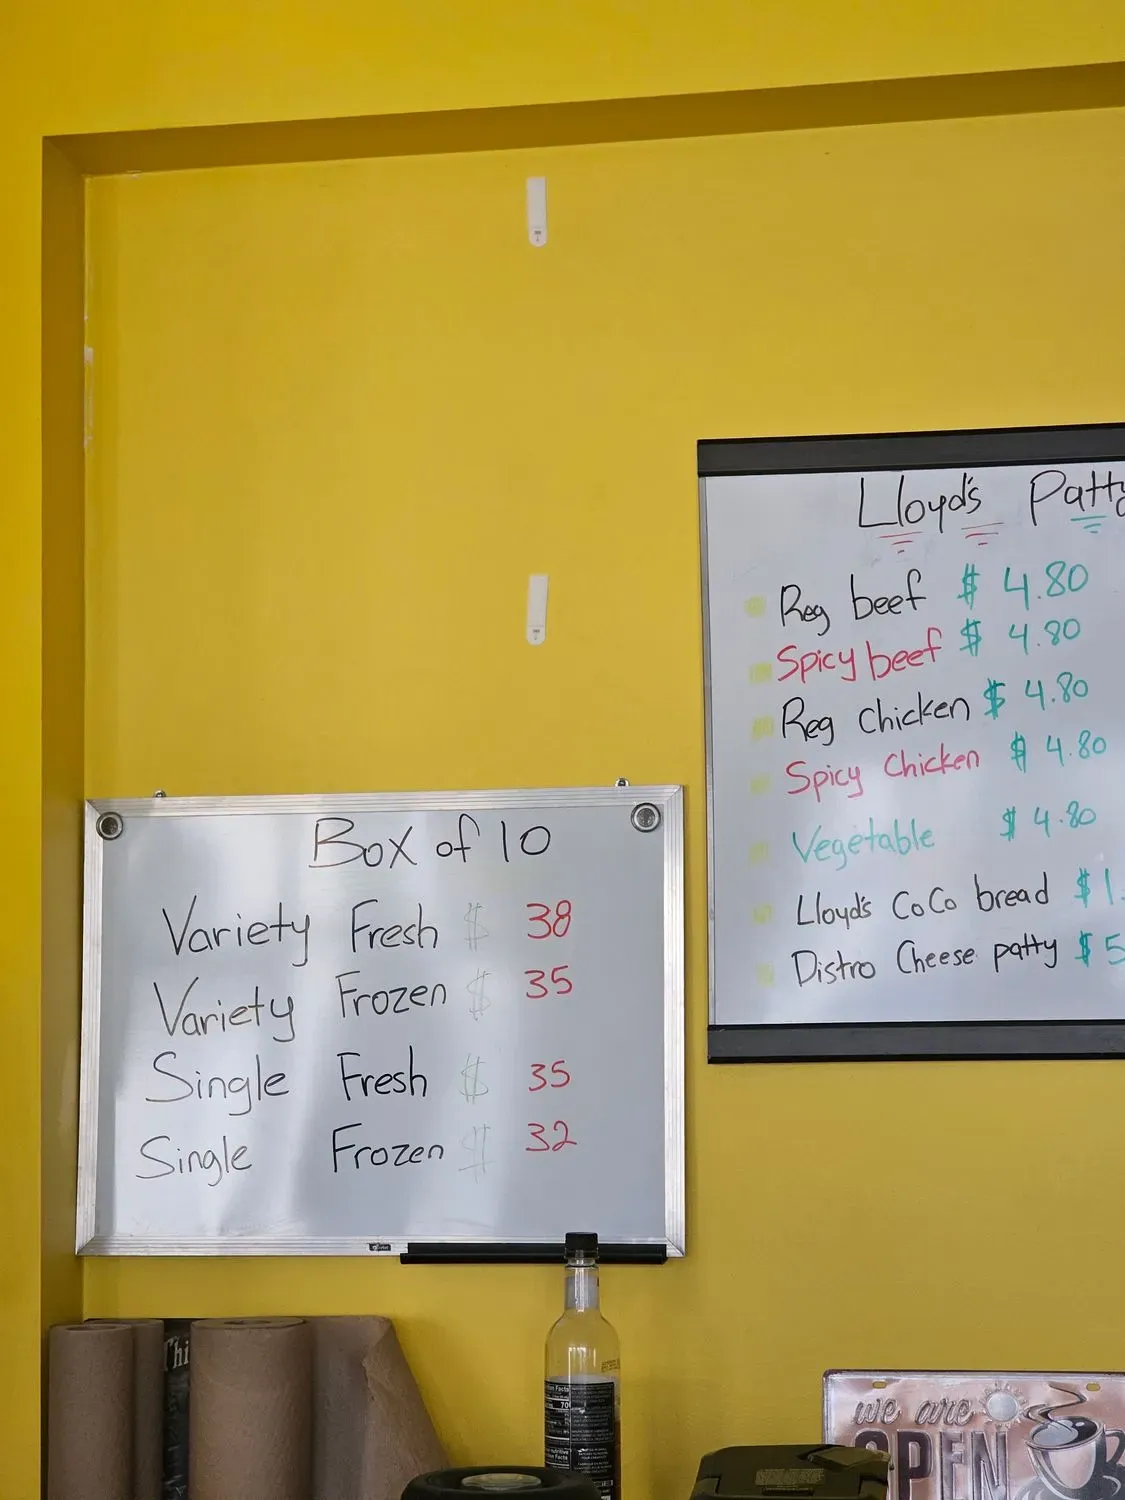 Lloyd's Patty
Reg beef $ 4.80
Spicy beef $ 4.80
Reg chicken $ 4.80
Spicy chicken $ 4.80
Vegetable $ 4.80
Lloyd's CoCo bread $ 1.
Distro Cheese patty $ 5
Box of 10
Variety Fresh $ 38
Variety Frozen $ 35
Single Fresh $ 35
Single Frozen $ 32
Thi
we are
OPEN